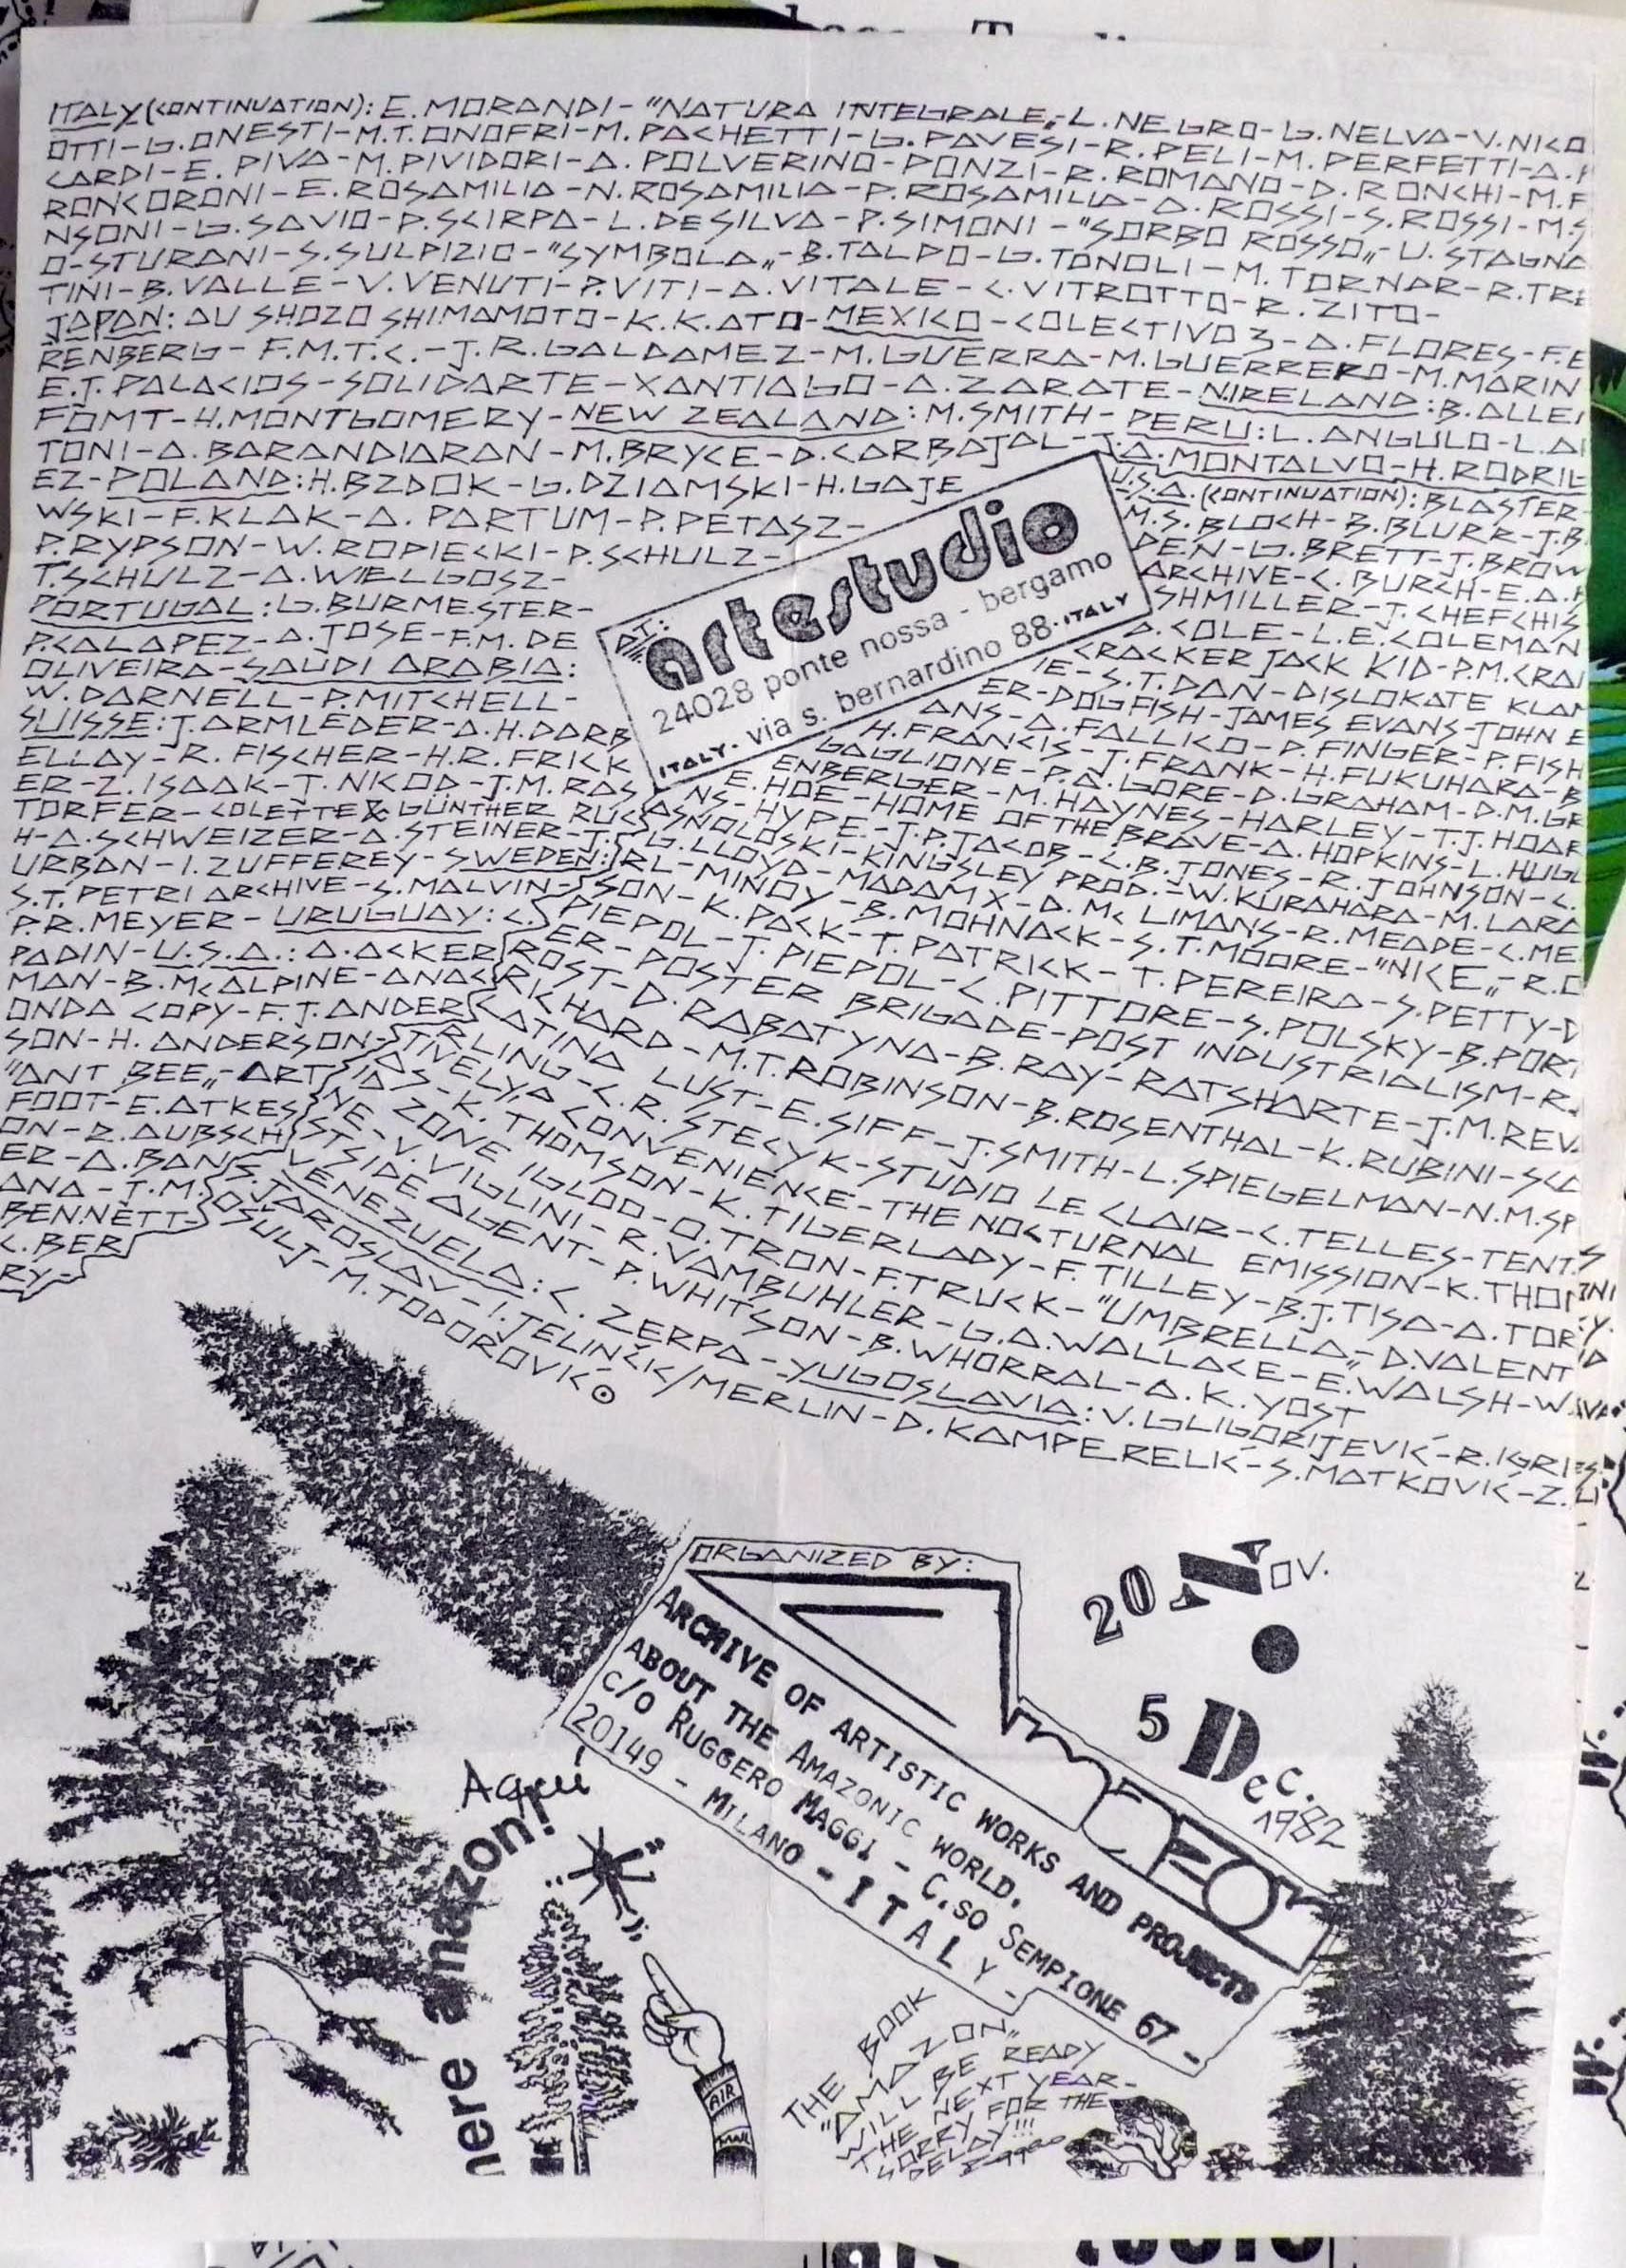 ITALY (CONTINUATION): E. MORANDI - "NATURA INTEGRALE„ - L. NEGRO - G. NELVA - V. NICO
OTTI - G. ONESTI - M.T. ONOFRI - M. PACHETTI - G. PAVESI - R. PELI - M. PERFETTI - A. P
CARDI - E. PIVA - M. PIVIDORI - A. POLVERINO - PONZI - R. ROMANO - D. RONCHI - M. F
RONCORONI - E. ROSAMILIA - N. ROSAMILIA - P. ROSAMILIA - A. ROSSI - S. ROSSI - M. S
NSONI - G. SAVIO - P. SCIRPA - L. DE SILVA - P. SIMONI - "SORBO ROSSO„ - U. STAGNA
O - STURANI - S. SULPIZIO - "SYMBOLA„ - B. TALPO - G. TONOLI - M. TORNAR - R. TRE
TINI - B. VALLE - V. VENUTI - P. VITI - A. VITALE - C. VITROTTO - R. ZITO -
JAPAN: AU SHOZO SHIMAMOTO - K. KATO - MEXICO - COLECTIVO 3 - A. FLORES - F. E
RENBERG - F.M.T.C. - J.R. GALDAMEZ - M. GUERRA - M. GUERRERO - M. MARIN
E.T. PALACIOS - SOLIDARTE - XANTIAGO - A. ZARATE - N.IRELAND: B. ALLE
FOMT - H. MONTGOMERY - NEW ZEALAND: M. SMITH - PERU: L. ANGULO - L. A
TONI - A. BARANDIARAN - M. BRYCE - D. CARBAJAL - J.A. MONTALVO - H. RODRIG
EZ - POLAND: H. BZDOK - G. DZIAMSKI - H. GAJE
WSKI - F. KLAK - A. PARTUM - P. PETASZ -
P. RYPSON - W. ROPIECKI - P. SCHULZ -
T. SCHULZ - A. WIELGOSZ -
PORTUGAL: G. BURMESTER -
P. CALAPEZ - A. JOSE - F.M. DE
OLIVEIRA - SAUDI ARABIA:
W. DARNELL - P. MITCHELL -
SUISSE: J. ARMLEDER - A.H. DARB
ELLAY - R. FISCHER - H.R. FRICK
ER - Z. ISAAK - T. NICOD - J.M. RAS
TORFER - COLETTE & GÜNTHER RUC
H - A. SCHWEIZER - A. STEINER - J.
URBAN - I. ZUFFEREY - SWEDEN:
S.T. PETRI ARCHIVE - S. MALVIN -
P.R. MEYER - URUGUAY: C.
PADIN - U.S.A.: A. ACKER
MAN - B. McALPINE - ANAC
ONDA COPY - F.J. ANDER
SON - H. ANDERSON -
"ANT BEE„ - ART
FOOT - E. ATKES
ON - R. AUBSCH
ER - A. BAN
ANA - J.M.
BENNETT -
C. BER
RY -
AT:
artestudio
24028 ponte nossa - bergamo
ITALY · via s. bernardino 88 · ITALY
U.S.A. (CONTINUATION): BLASTER -
M.S. BLOCH - B. BLURR - J. B
DEN - G. BRETT - J. BROW
ARCHIVE - C. BURCH - E.A.
SHMILLER - J. CHEFCHIS
A. COLE - L.E. COLEMAN
CRACKER JACK KID - P.M. CRA
IE - S.T. DAN - DISLOKATE KLA
ER - DOGFISH - JAMES EVANS - JOHN E
ANS - A. FALLICO - P. FINGER - P. FISH
H. FRANCIS - J. FRANK - H. FUKUHARA - B
GAGLIONE - P.A. GORE - D. GRAHAM - D.M. GR
ENBERGER - M. HAYNES - HARLEY - T.J. HOAR
E. HOE - HOME OF THE BRAVE - A. HOPKINS - L. HUG
NS - HYPE - J.P. JACOB - C.B. JONES - R. JOHNSON - C.
ASNOLOSKI - KINGSLEY PROD. - W. KURAHARA - M. LARA
G. LLOYD - MADAM X - D. Mc LIMANS - R. MEADE - C. ME
RL - MINOY - B. MOHNACK - S.T. MOORE - "NICE„ - R. O
SON - K. PACK - T. PATRICK - T. PEREIRA - S. PETTY - D
PIEPOL - J. PIEPOL - C. PITTORE - S. POLSKY - B. POR
ER - POSTER BRIGADE - POST INDUSTRIALISM - R.
ROST - D. RABATYNA - B. RAY - RATSHARTE - J.M. REV
RICHARD - M.T. ROBINSON - B. ROSENTHAL - K. RUBINI - SC
ATINA LUST - E. SIFF - J. SMITH - L. SPIEGELMAN - N.M. SP
TRLING - C.R. STECYK - STUDIO LE CLAIR - C. TELLES - TENT
ATIVELY, A CONVENIENCE - THE NOCTURNAL EMISSION - K. THO
AS - K. THOMSON - K. TIGERLADY - F. TILLEY - B.J. TISA - A. TOR
NE ZONE IGLOO - O. TRON - F. TRUCK - "UMBRELLA„ - D. VALENT
E - V. VIGLINI - R. VAMBUHLER - G.A. WALLACE - E. WALSH - W
STSIDE AGENT - P. WHITSON - B. WHORRAL - A.K. YOST
VENEZUELA: C. ZERPA - YUGOSLAVIA: V. GLIGORIJEVIĆ - R. IGRI
S. JAROSLAV - I. JELINČIĆ/MERLIN - D. KAMPERELIĆ - S. MATKOVIĆ - Z.
OSULJ - M. TODOROVIĆ
ORGANIZED BY:
AMAZON
ARCHIVE OF ARTISTIC WORKS AND PROJECTS
ABOUT THE AMAZONIC WORLD.
C/O RUGGERO MAGGI - C.SO SEMPIONE 67 -
20149 - MILANO - ITALY -
20 Nov.
5 Dec.
1982
Aquí
here amazon!
AIR
MAIL
THE BOOK
"AMAZON„
WILL BE READY
THE NEXT YEAR -
SORRY FOR THE
DELAY!!!